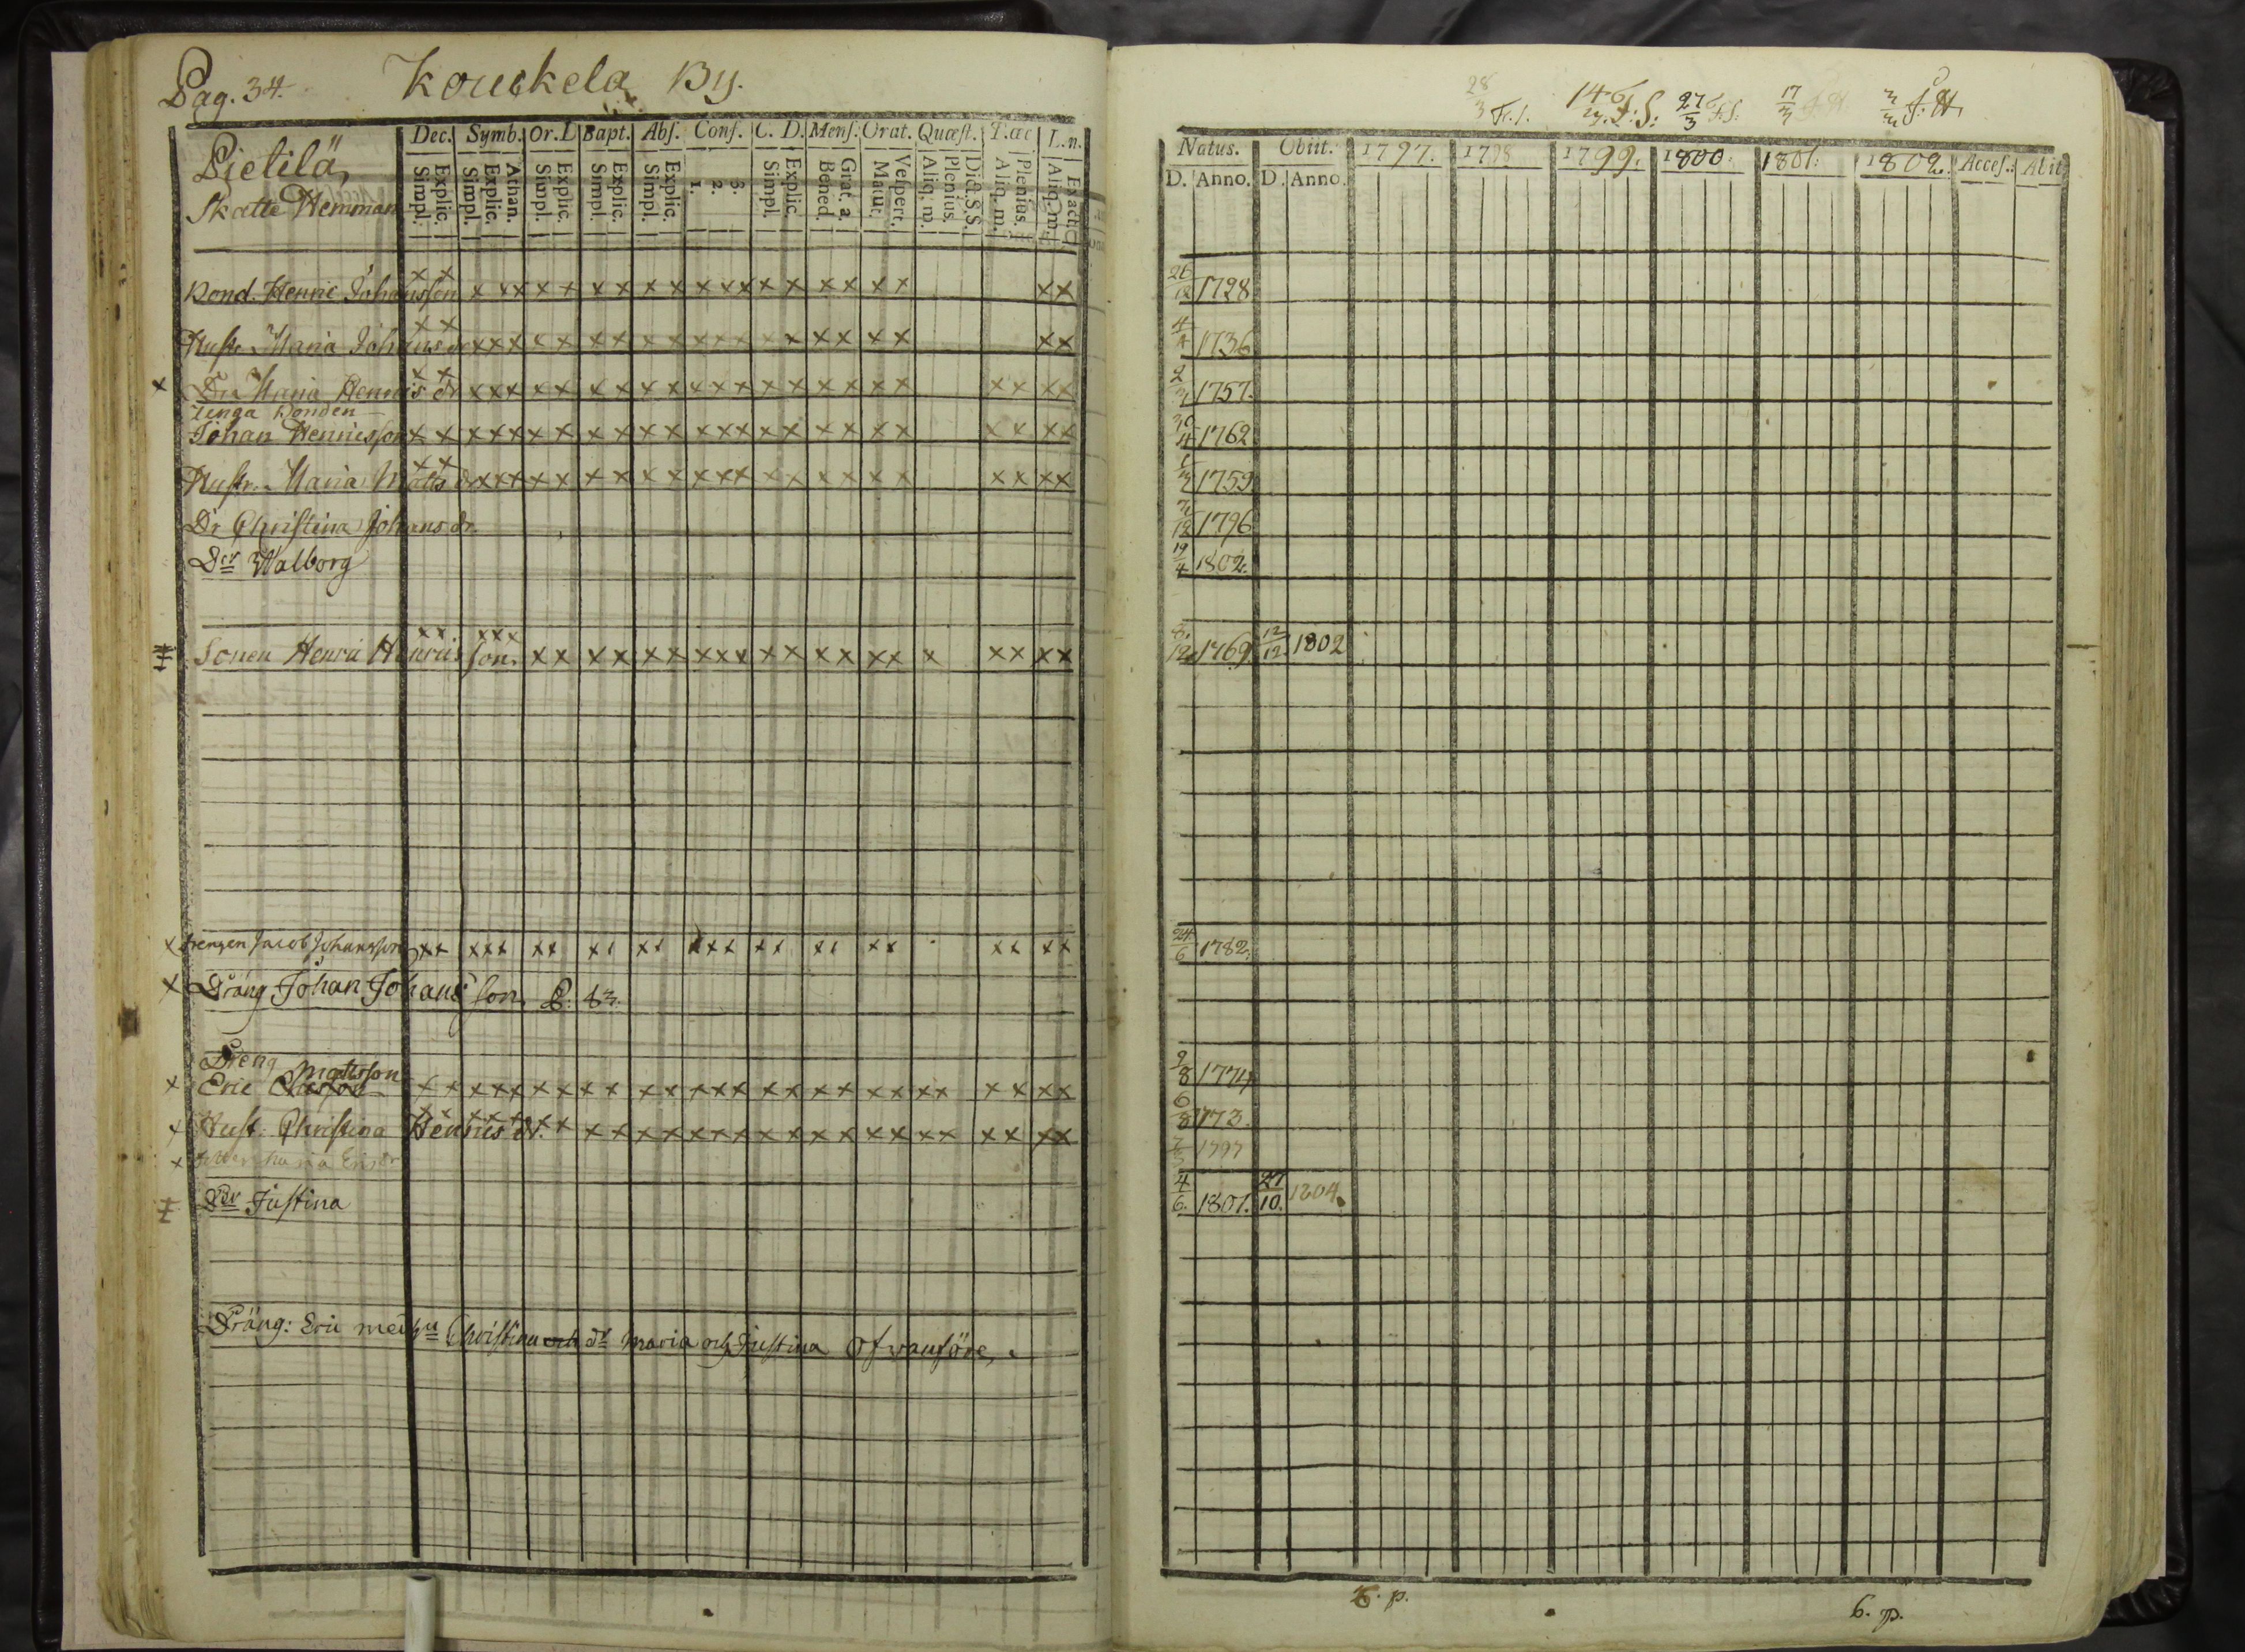 Pag. 34. Kouckela By.
Pietilä,
Skatte Hemman
Dec. Symb. Or. D Bapt. Abs. Conf. C. D. Mens. Orat. Quæst. T. œc L. n.
Explic. Simpl. Athan. Explic. Simpl. Explic. Simpl. Explic. Simpl. Explic. Simpl. 3. 2. 1. Explic. Simpl. Grat. a. Bened. Vespert. Matut. Dict. S. S. Plenius. Aliq. m. Plenius. Aliq. m. Exacte Aliq. m.
Bond. Henric Johansson x x x x x x x x x x x x x x x x x x x x x x x
Hustr. Maria Johans dr x x x x x x x x x x x x x x x x x x x x x x
x Dr Maria Henrics dr x x x x x x x x x x x x x x x x x x x x x x x x
Unga Bonden
Johan Henricsson x x x x x x x x x x x x x x x x x x x x x x x x
Hustr. Maria Matts dr x x x x x x x x x x x x x x x x x x x x x x x x
Dr Christina Johans dr.
Dr Walborg
Sonen Henric Henrics son. x x x x x x x x x x x x x x x x x x x x x x x x x
x Drengen Jacob Johansson x x x x x x x x x x x x x x x x x x x x x x x x
x Dräng Johan Johans son,
Dreng
Mattsson
x Eric x x x x x x x x x x x x x x x x x x x x x x x x x x
x Hust. Christina Henrics dr. x x x x x x x x x x x x x x x x x x x x x x x x x x
x Maria Erics dr
Dr Justina
Dräng: Eric med hu Christina och dr Maria och Justina Ofwanföre,
28/3 F. S. 14/3 F: S: 27/3 F: S: 17/3 J. H. J: H.
Natus. Obiit. 1797. 1798 1799. 1800. 1801. 1802. Acces. Abit
D. Anno. D. Anno.
26/12 1728
4/4 1736
2/3 1757.
30/4 1762
1759
1796
19/4 1802.
8/12 1769 12/12 1802
24/6 1782.
9/8 1774
6/8 1773.
1797
4/6. 1801. 27/10. 1804.
6. p. 6. p.